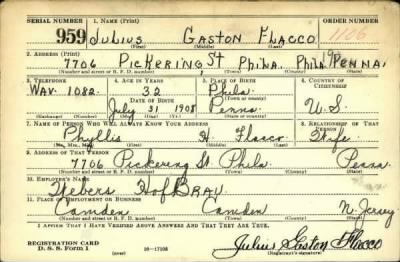 SERIAL NUMBER 1. NAME (Print) ORDER NUMBER
959 JULIUS GASTON FLACCO 1106
(First) (Middle) (Last)
2. ADDRESS (Print)
7706 PICKERING St. PhilA. PhilA. PENNA.
(Number and street or R. F. D. number) (Town) (County) (State)
3. TELEPHONE 4. AGE IN YEARS 5. PLACE OF BIRTH 6. COUNTRY OF CITIZENSHIP
WAV. 1082. 32 Phila.
DATE OF BIRTH (Town or county)
July 31 1908 Penna. U.S.
(Exchange) (Number) (Mo.) (Day) (Yr.) (State or country)
7. NAME OF PERSON WHO WILL ALWAYS KNOW YOUR ADDRESS 8. RELATIONSHIP OF THAT PERSON
Phyllis H. Flacco Wife
(Mr., Mrs., Miss) (First) (Middle) (Last)
9. ADDRESS OF THAT PERSON
7706 Pickering St. Phila. Penna
(Number and street or R. F. D. number) (Town) (County) (State)
10. EMPLOYER'S NAME
Webers HofBrau
11. PLACE OF EMPLOYMENT OR BUSINESS
Camden Camden N. Jersey
(Number and street or R. F. D. number) (Town) (County) (State)
I AFFIRM THAT I HAVE VERIFIED ABOVE ANSWERS AND THAT THEY ARE TRUE.
REGISTRATION CARD
D. S. S. Form 1 (over) 16-17105 Julius Gaston Flacco
(Registrant's signature)